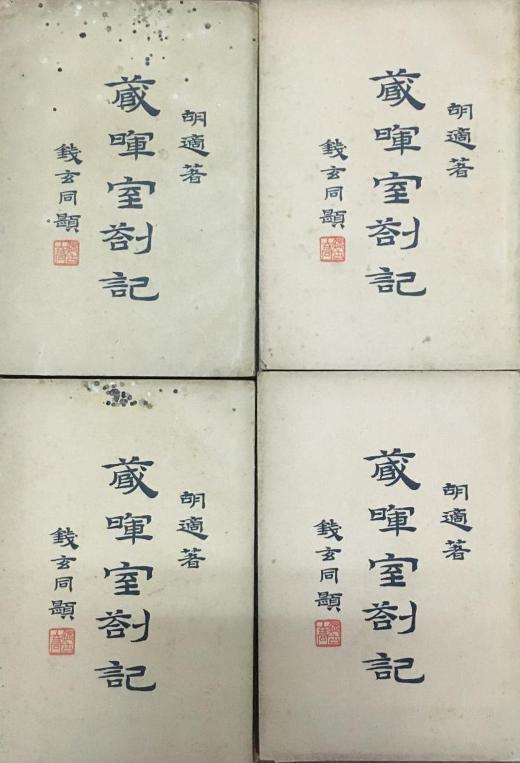 胡適著
藏暉室劄記
錢玄同題
胡適著
藏暉室劄記
錢玄同題
胡適著
藏暉室劄記
錢玄同題
胡適著
藏暉室劄記
錢玄同題